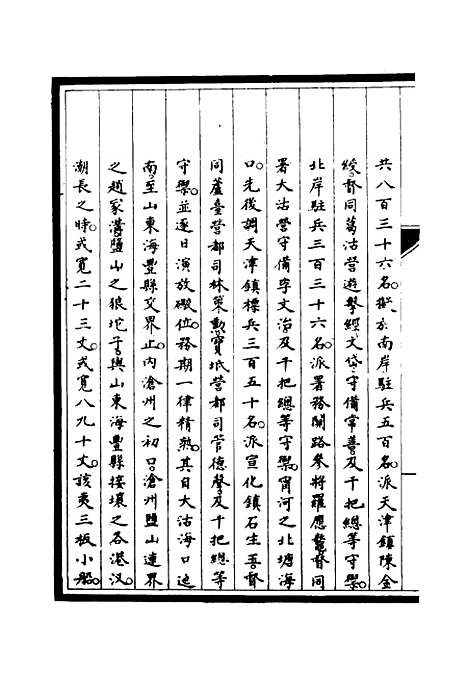 共八百三十六名。擬於南岸駐兵五百名。派天津鎮陳金
綬。督同葛沽營遊擊經文岱。守備常善。及千把總等守禦。
北岸駐兵三百三十六名。派署務關路參將羅應鼇。督同
署大沽營守備李文治。及千把總等守禦。甯河之北塘海
口。先後調天津鎮標兵三百五十名。派宣化鎮石生玉。督
同蘆臺營都司林策勳。寶坻營都司管德馨。及千把總等
守禦。並逐日演放礮位。務期一律精熟。其自大沽海口迤
南。至山東海豐縣交界止。內滄州之初口。滄州鹽山連界
之趙家溝。鹽山之狼坨子。與山東海豐縣接壤之各港汊。
潮長之時。或寬二十三丈。或寬八九十丈。該夷三板小船。